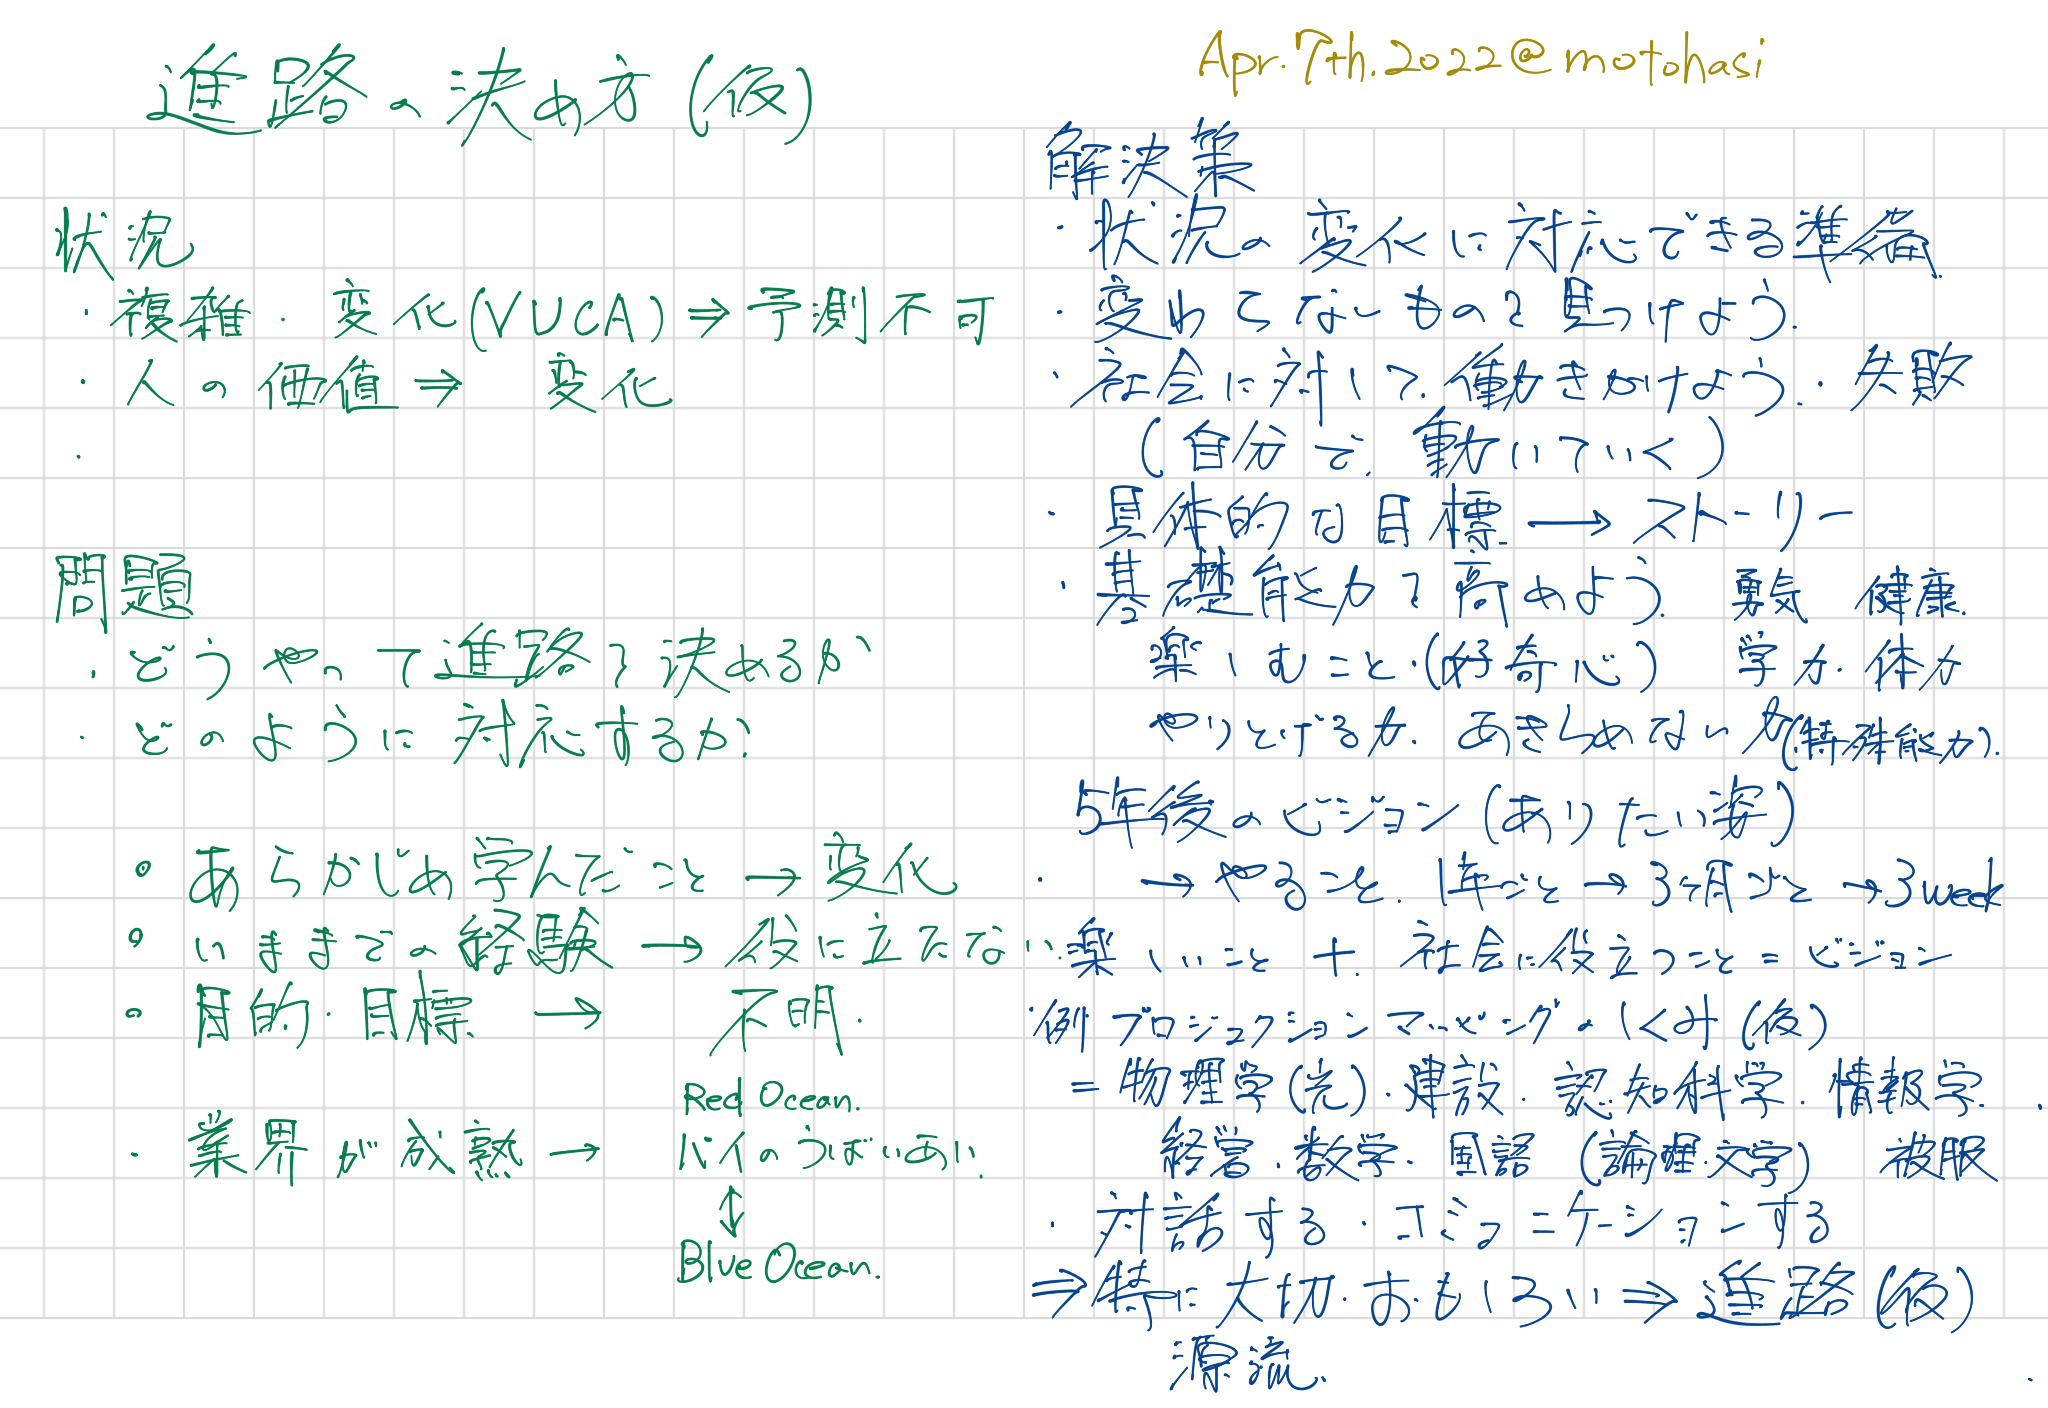 進路の決め方(仮)
Apr.7th.2022@motohasi
状況
・複雑・変化(VUCA)⇒予測不可
・人の価値⇒ 変化
・
問題
・どうやって進路を決めるか
・どのように対応するか?
。あらかじめ学んだこと→変化
。いままでの経験→役に立たない.
。目的・目標 → 不明.
Red Ocean.
・業界が成熟→ パイのうばいあい.
↕
Blue Ocean.
解決策
・状況の変化に対応できる準備.
・変わらないものを見つけよう.
・社会に対して.働きかけよう.・失敗
(自分で.動いていく)
・具体的な目標→ストーリー
・基礎能力を高めよう. 勇気 健康.
楽しむこと・(好奇心) 学力・体力
やりとげる力. あきらめない力(特殊能力).
5年後のビジョン(ありたい姿)
・ →やること. 1年ごと→3ヶ月ごと→3week
楽しいこと + 社会に役立つこと=ビジョン
・例 プロジェクションマッピングのしくみ(仮)
=物理学(光)・建設・認知科学・情報学.
経営・数学・国語(論理・文学) 被服
・対話する・コミュニケーションする
⇒特に大切・おもしろい⇒進路(仮)
源流.